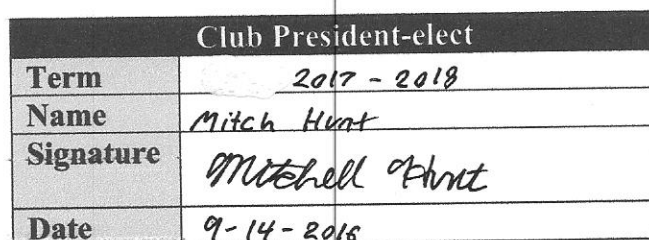 Club President-elect
Term 2017 - 2018
Name Mitch Hunt
Signature Mitchell Hunt
Date 9-14-2016